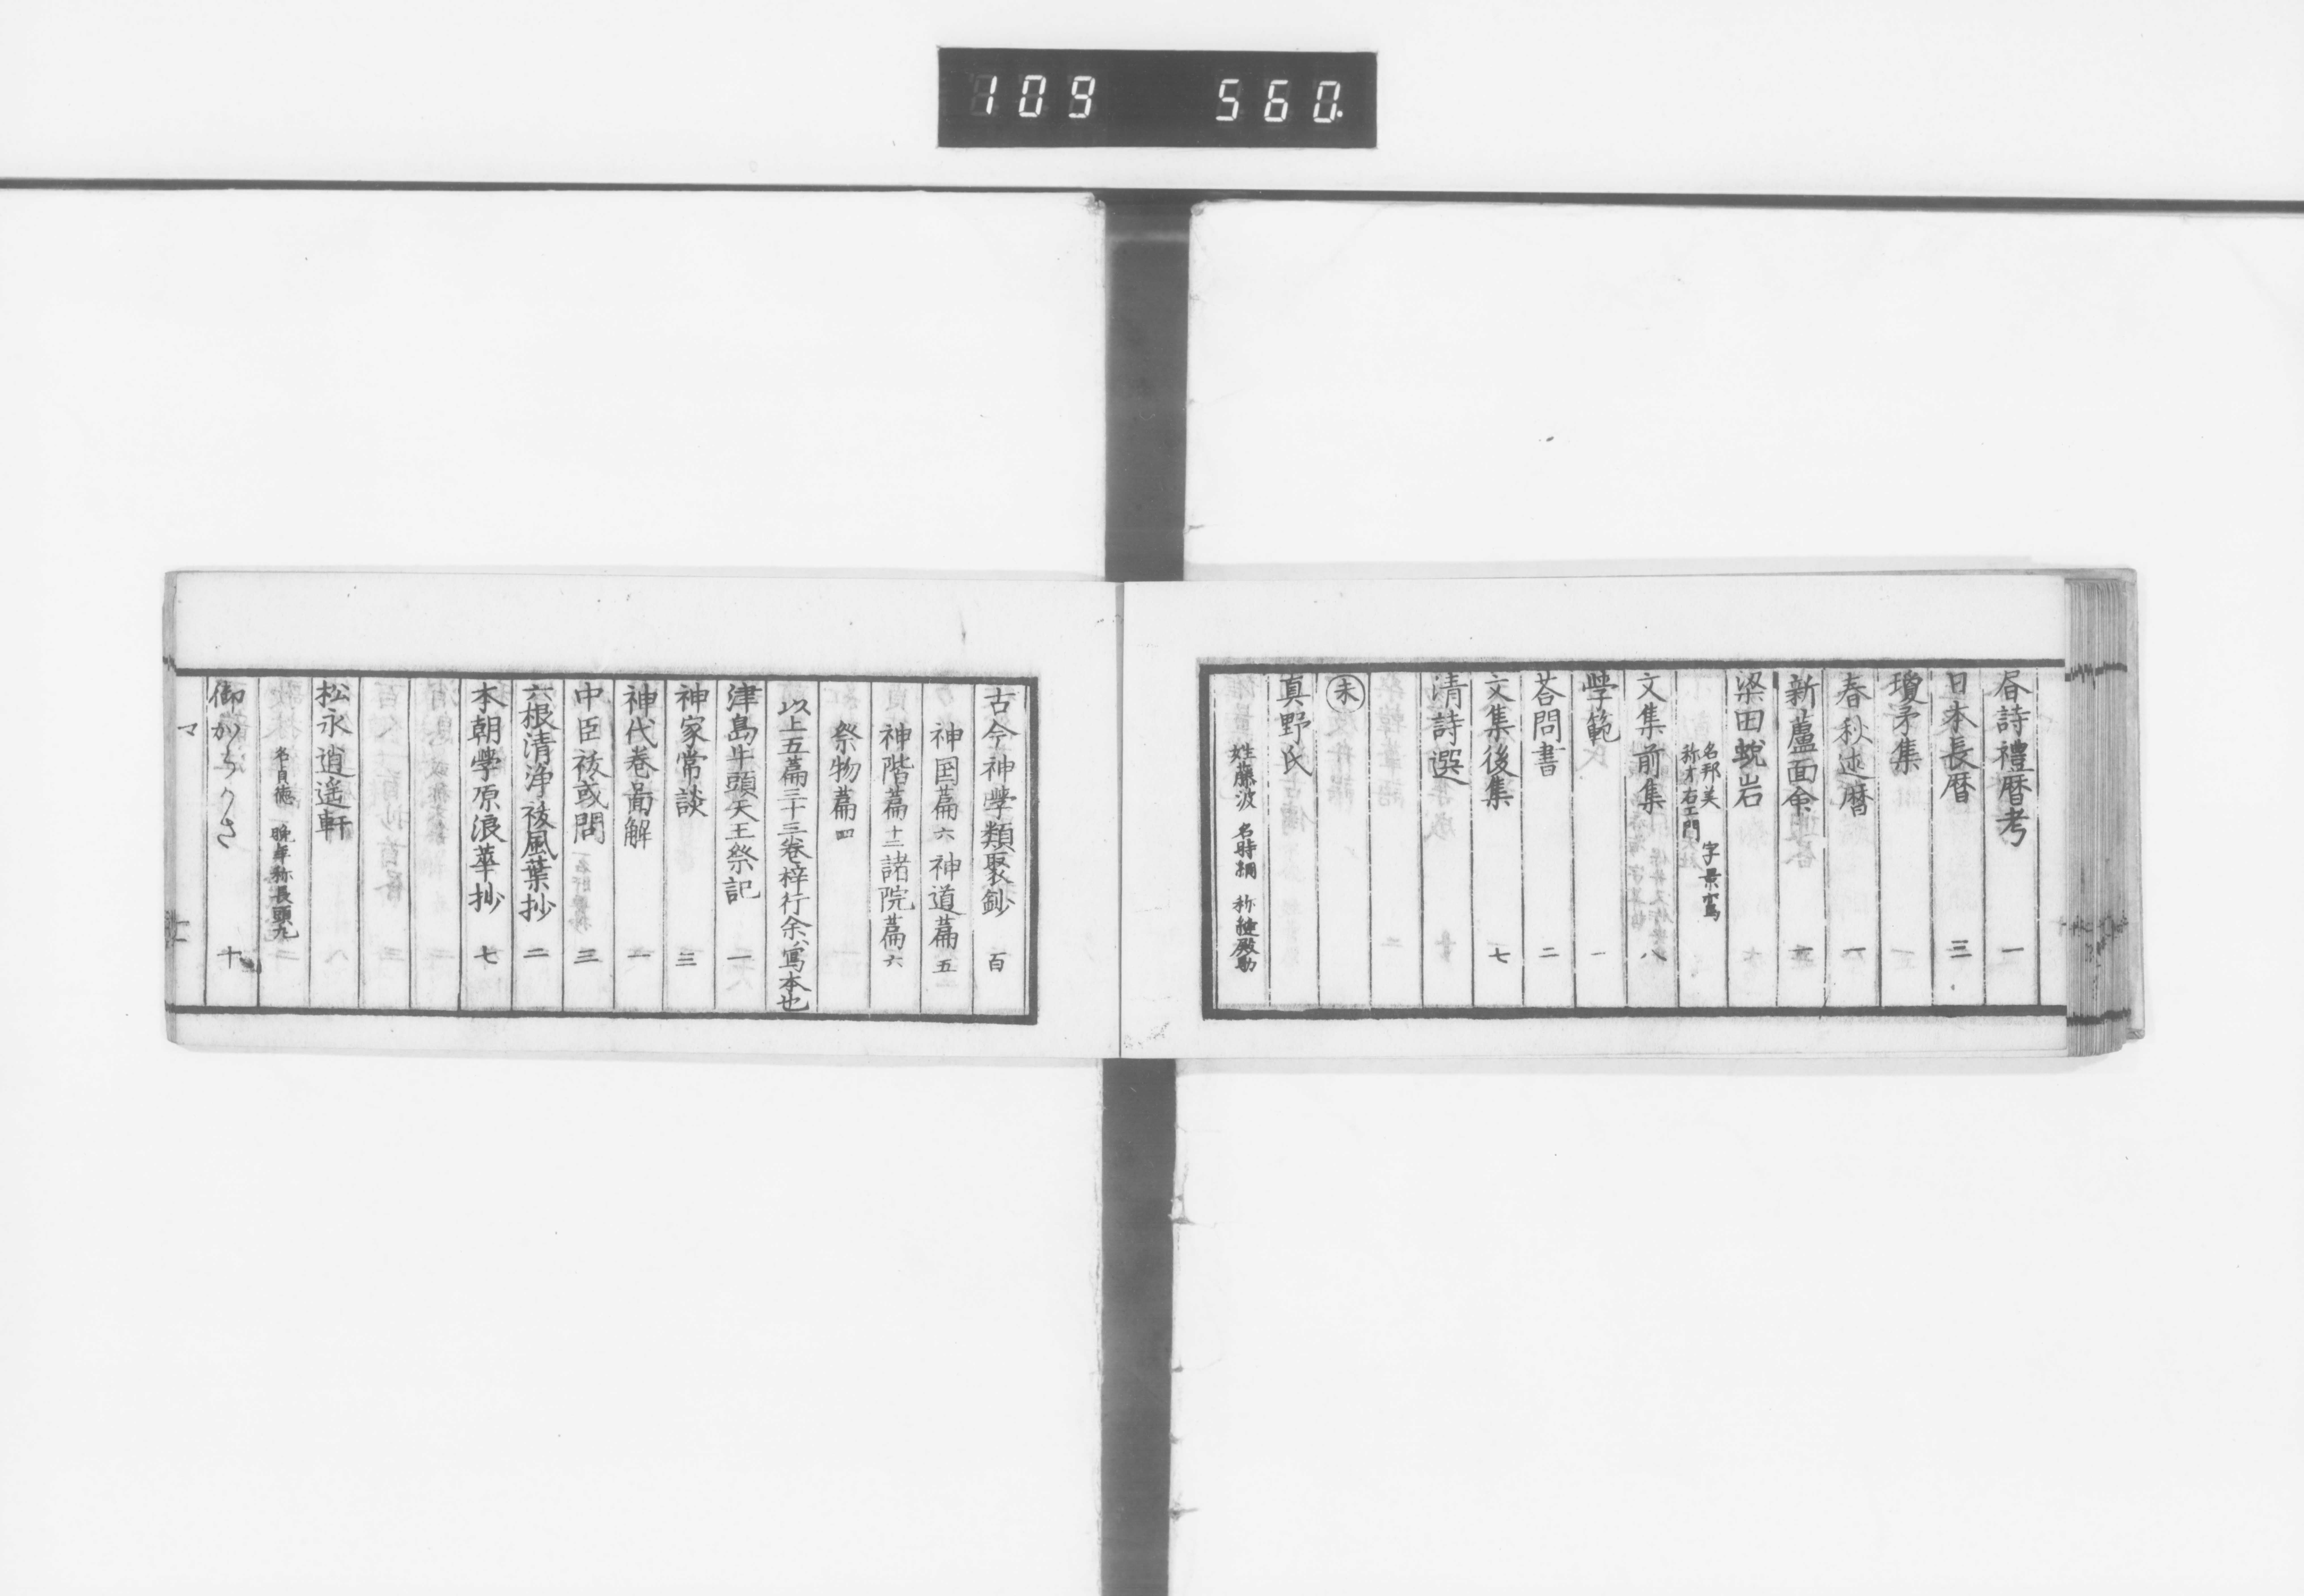 109 560.
昼詩禮暦考 一
日本長暦 三
瓊矛集
春秋述暦 一
新蘆面命 二
梁田蛻岩
名邦美 字景鸞
称才右エ門
文集前集 八
學範 一
荅問書 二
文集後集 七
清詩選
末
真野氏
姓藤波 名時綱 称縫殿助
古今神學類聚鈔 百
神国篇六 神道篇五
神階篇十二 諸院篇六
祭物篇四
以上五篇三十三巻梓行余ハ寫本也
津島牛頭天王祭記 一
神家常談 三
神代巻啚解 一
中臣祓或問 三
六根清浄祓風葉抄 二
本朝學原浪華抄 七
松永逍遥軒
名貞徳 晩年称長頭丸
御からかさ 十
マ